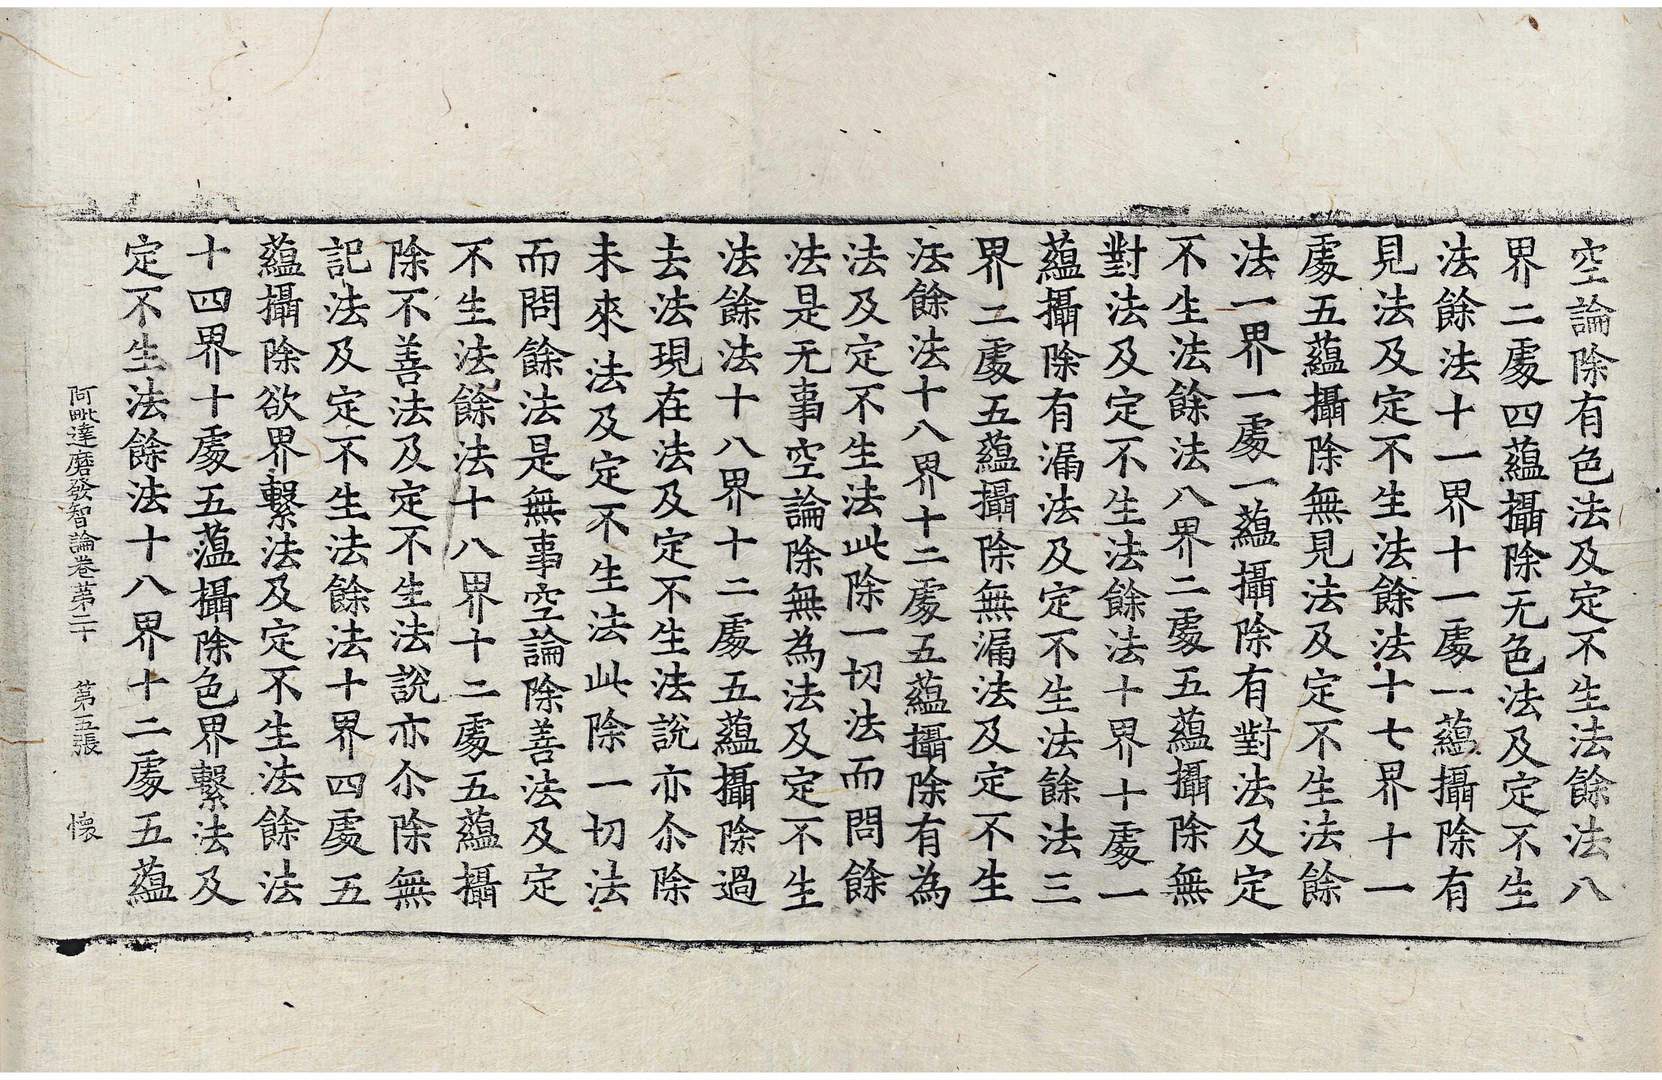 空論除有色法及定不生法餘法八
界二處四蘊攝除无色法及定不生
法餘法十一界十一處一蘊攝除有
見法及定不生法餘法十七界十一
處五蘊攝除無見法及定不生法餘
法一界一處一蘊攝除有對法及定
不生法餘法八界二處五蘊攝除無
對法及定不生法餘法十界十處一
蘊攝除有漏法及定不生法餘法三
界二處五蘊攝除無漏法及定不生
法餘法十八界十二處五蘊攝除有為
法及定不生法此除一切法而問餘
法是无事空論除無為法及定不生
法餘法十八界十二處五蘊攝除過
去法現在法及定不生法說亦尒除
未來法及定不生法此除一切法
而問餘法是無事空論除善法及定
不生法餘法十八界十二處五蘊攝
除不善法及定不生法說亦尒除無
記法及定不生法餘法十界四處五
蘊攝除欲界繫法及定不生法餘法
十四界十處五蕰攝除色界繫法及
定不生法餘法十八界十二處五蘊
阿毗達磨發智論卷苐二十 第五張 懷